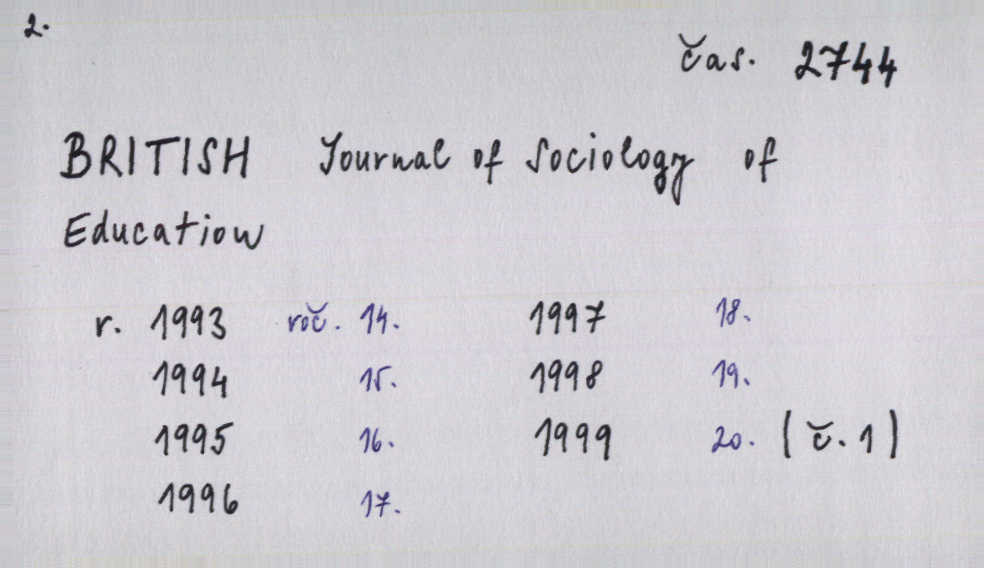 2.
čas. 2744
BRITISH Journal of Sociology of
Education
r. 1993 roč. 14. 1997 18.
1994 15. 1998 19.
1995 16. 1999 20. (č. 1)
1996 17.